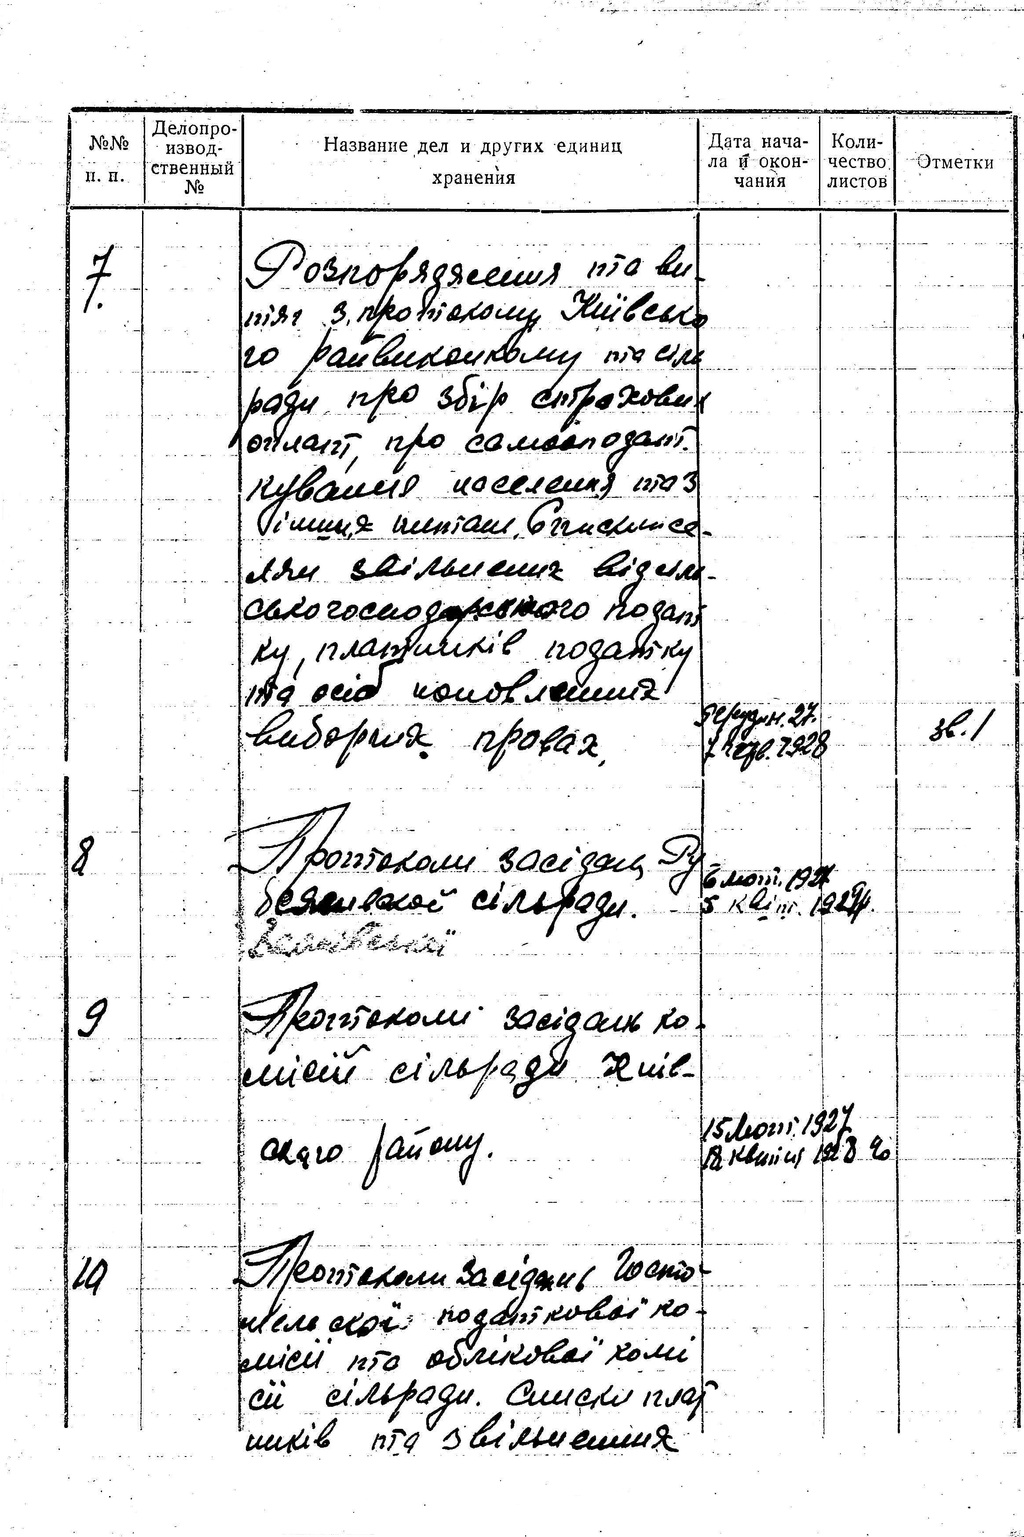 №№ п. п.
Делопро-
извод-
ственный
№
Название дел и других единиц
хранения
Дата нача-
ла и окон-
чания
Коли-
чество
листов
Отметки
7.
Розпорядження та ви-
тяг з протокому Київсько
го райвиконкому та сіль
ради про збір страхових
оплат, про самооподат.
кування населення та з
інших питань. Списки се-
лян звільнених від сіль-
ськогосподарського подат
ку, платників податку
та осіб поновлених
виборчих правах.
5 грудн. 27.
7 черв. 1928
зв. 1
8
Протоколи засідань Ру
бежівської сільради.
6 лют. 1927
5 квіт. 1929р.
9
Протоколи засідань ко-
місій сільради Київ-
ского району.
15 лют. 1927
18 квітня 1928 р
10
Протоколи засідань Госто-
мельскої податкової ко-
місії та облікової комі
сії сільради. Списки плат
ників та звільнених